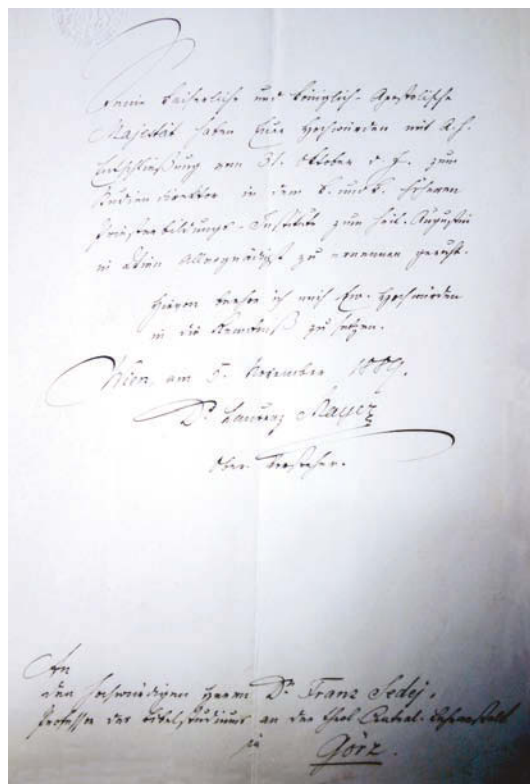 Seine kaiserliche und königlich-Apostolische
Majestät haben Euer Hochwürden mit A.h.
Entschließung vom 31. Oktober d. J. zum
Studiendirektor in dem k. und k. höheren
Priesterbildungs-Institute zum heil. Augustin
in Wien Allergnädigst zu ernennen geruht.
Hievon beehre ich mich Ew. Hochwürden
in die Kenntniß zu setzen.
Wien, am 5. November 1889.
Dr. Laurenz Mayer
Ober-Vorsteher.
An
den hochwürdigen Herrn Dr. Franz Sedej,
Professor des Bibelstudiums an der theol. Central-Lehranstalt
in
Görz.